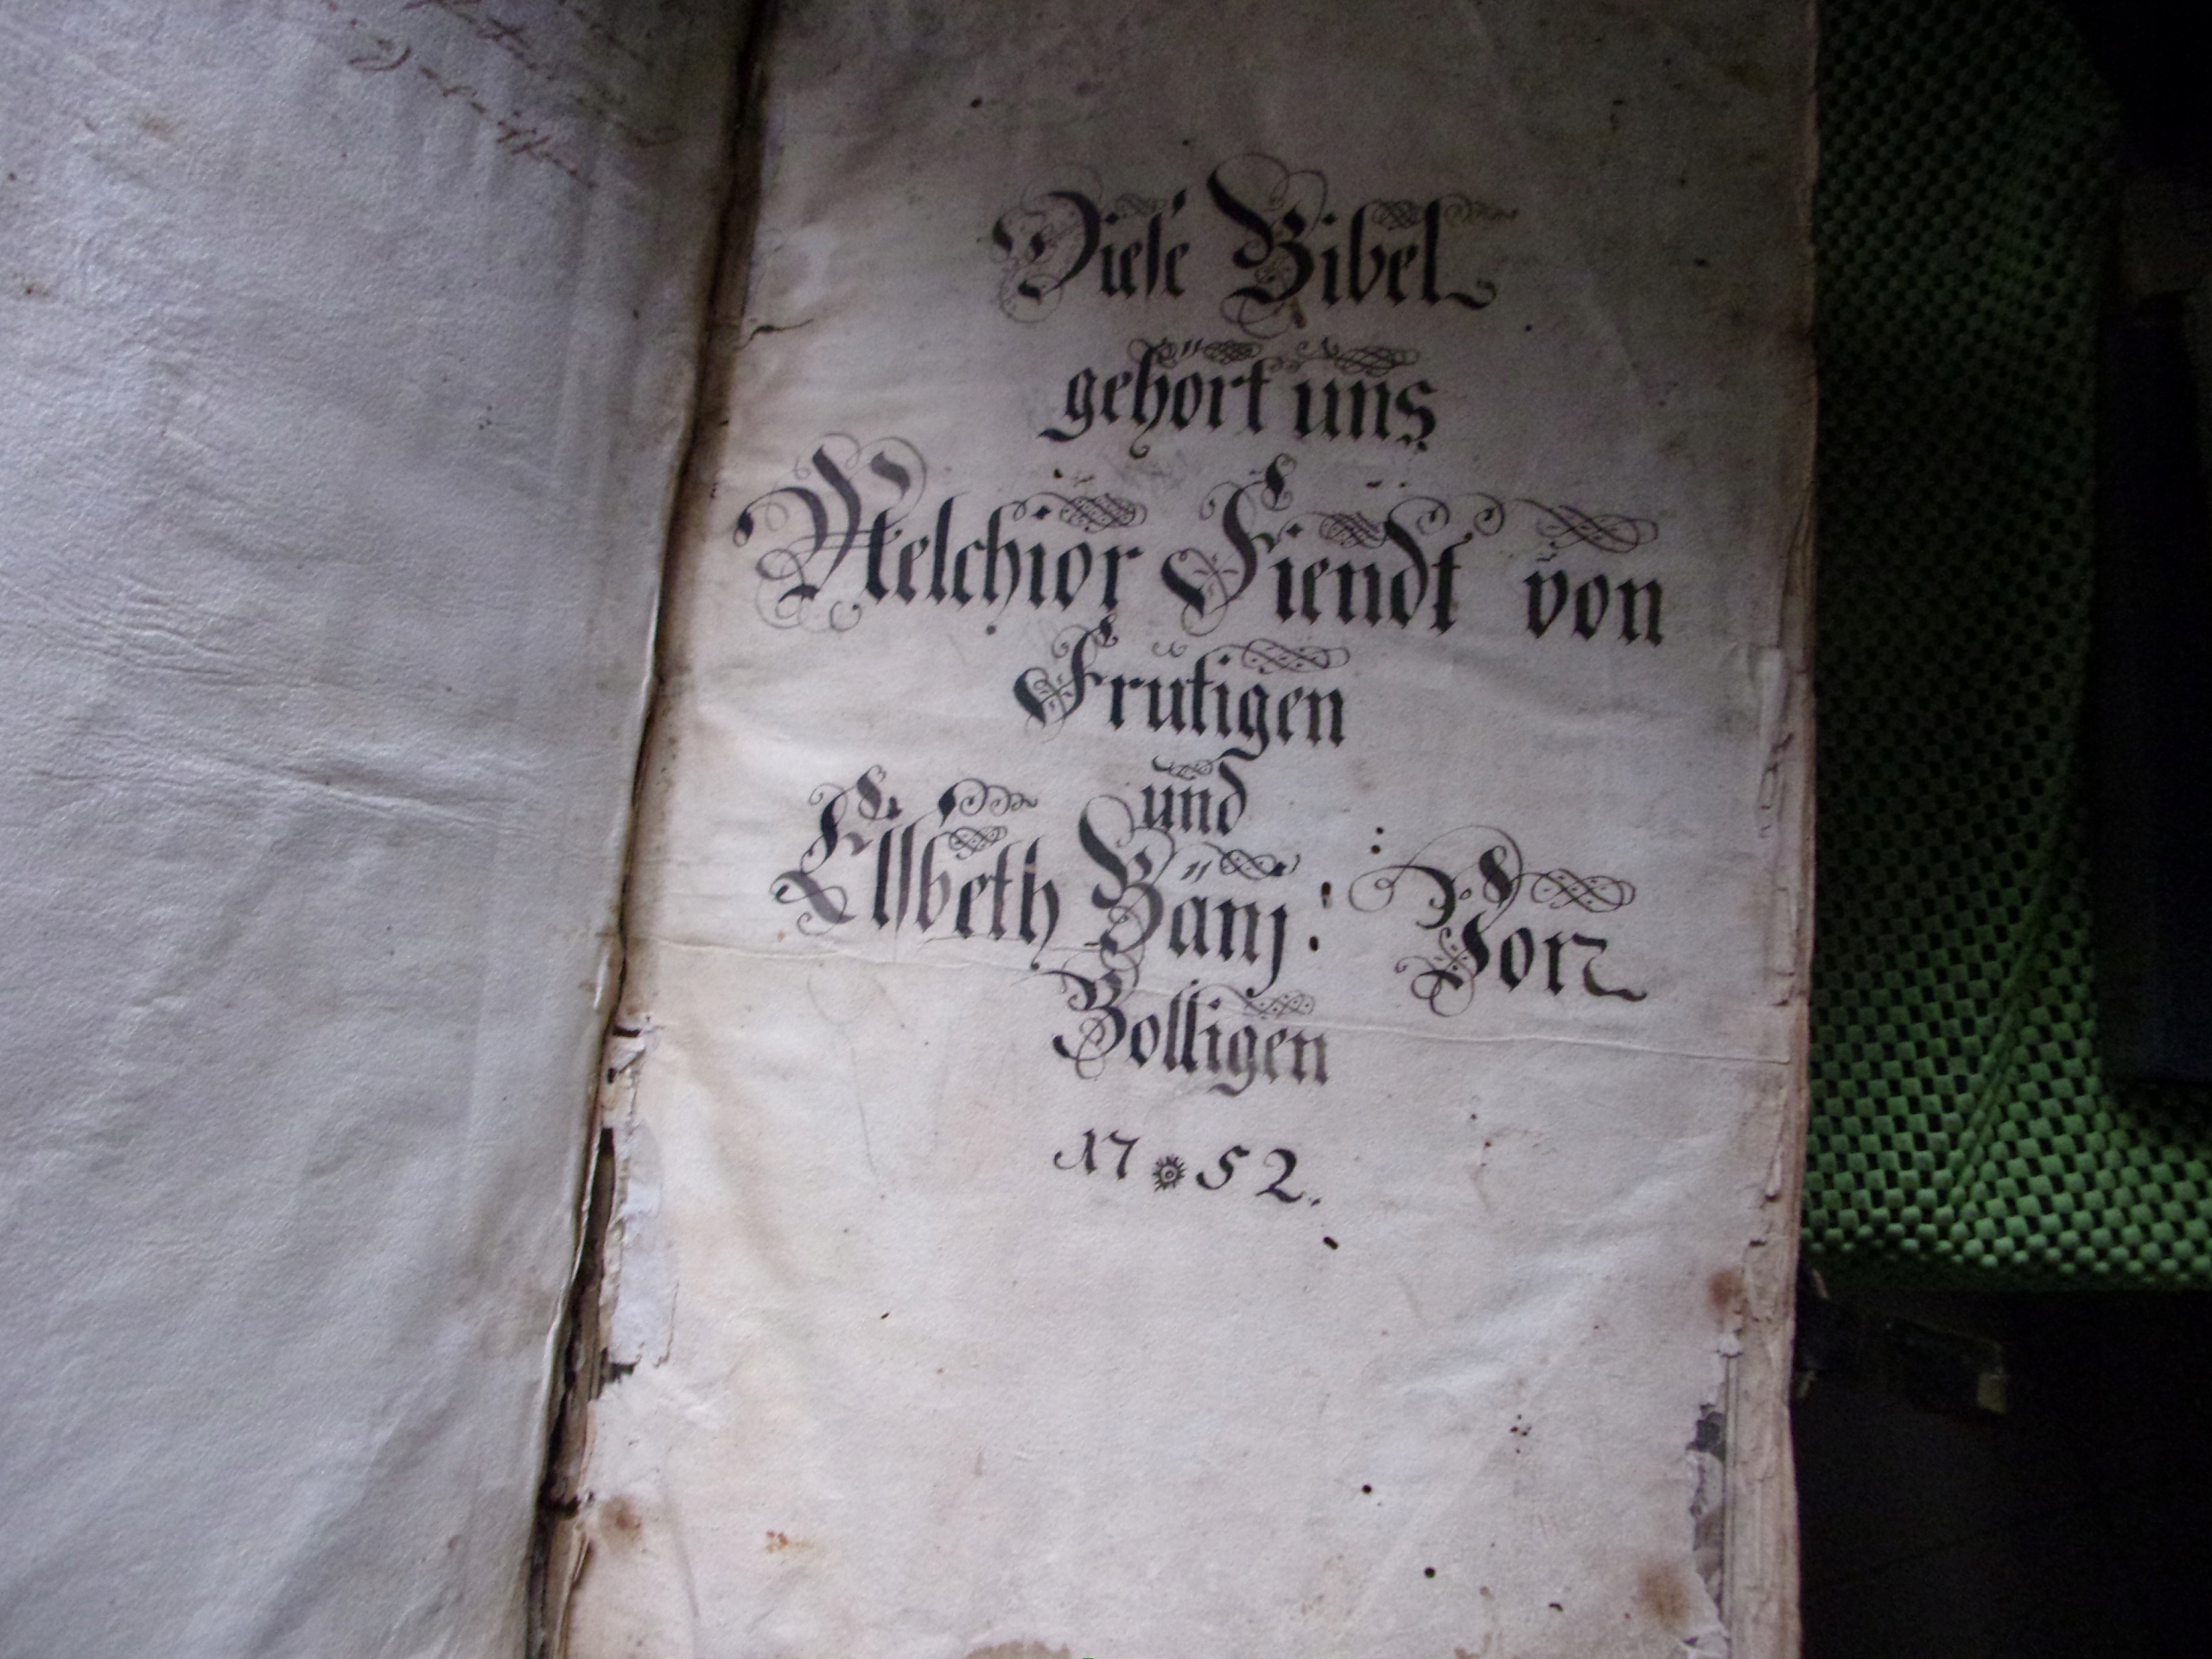 Diese Bibel
gehört uns
Melchior Fiendt von
Frutigen
und
Elsbeth Bänj: Von
Bolligen
17 52.